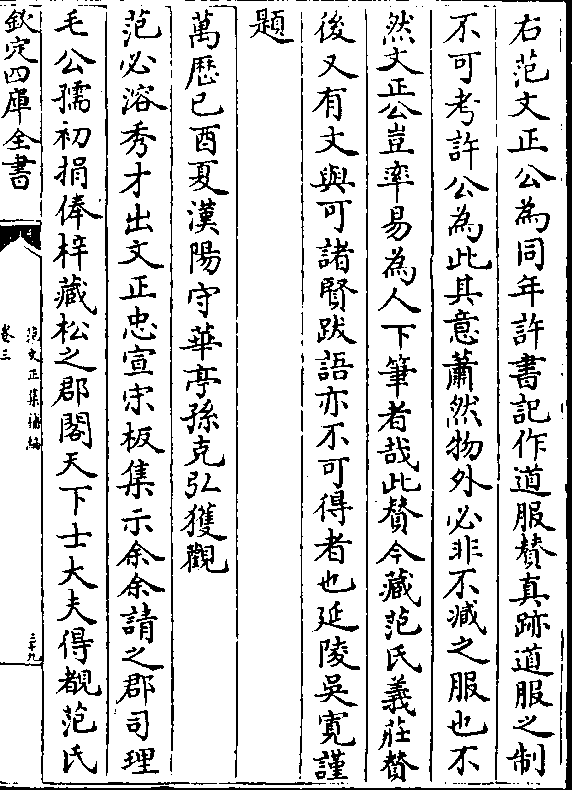 右范文正公為同年許書記作道服賛真跡道服之制
不可考許公為此其意蕭然物外必非不減之服也不
然文正公豈率易為人下筆者哉此賛今藏范氏義莊賛
後又有文與可諸賢跋語亦不可得者也延陵吳寛謹
題
萬歴己酉夏漢陽守華亭孫克弘獲觀
范必溶秀才出文正忠宣宋板集示余余請之郡司理
毛公孺初捐俸梓藏松之郡閣天下士大夫得覩范氏
欽定四庫全書
范文正集補編
卷三
三十九